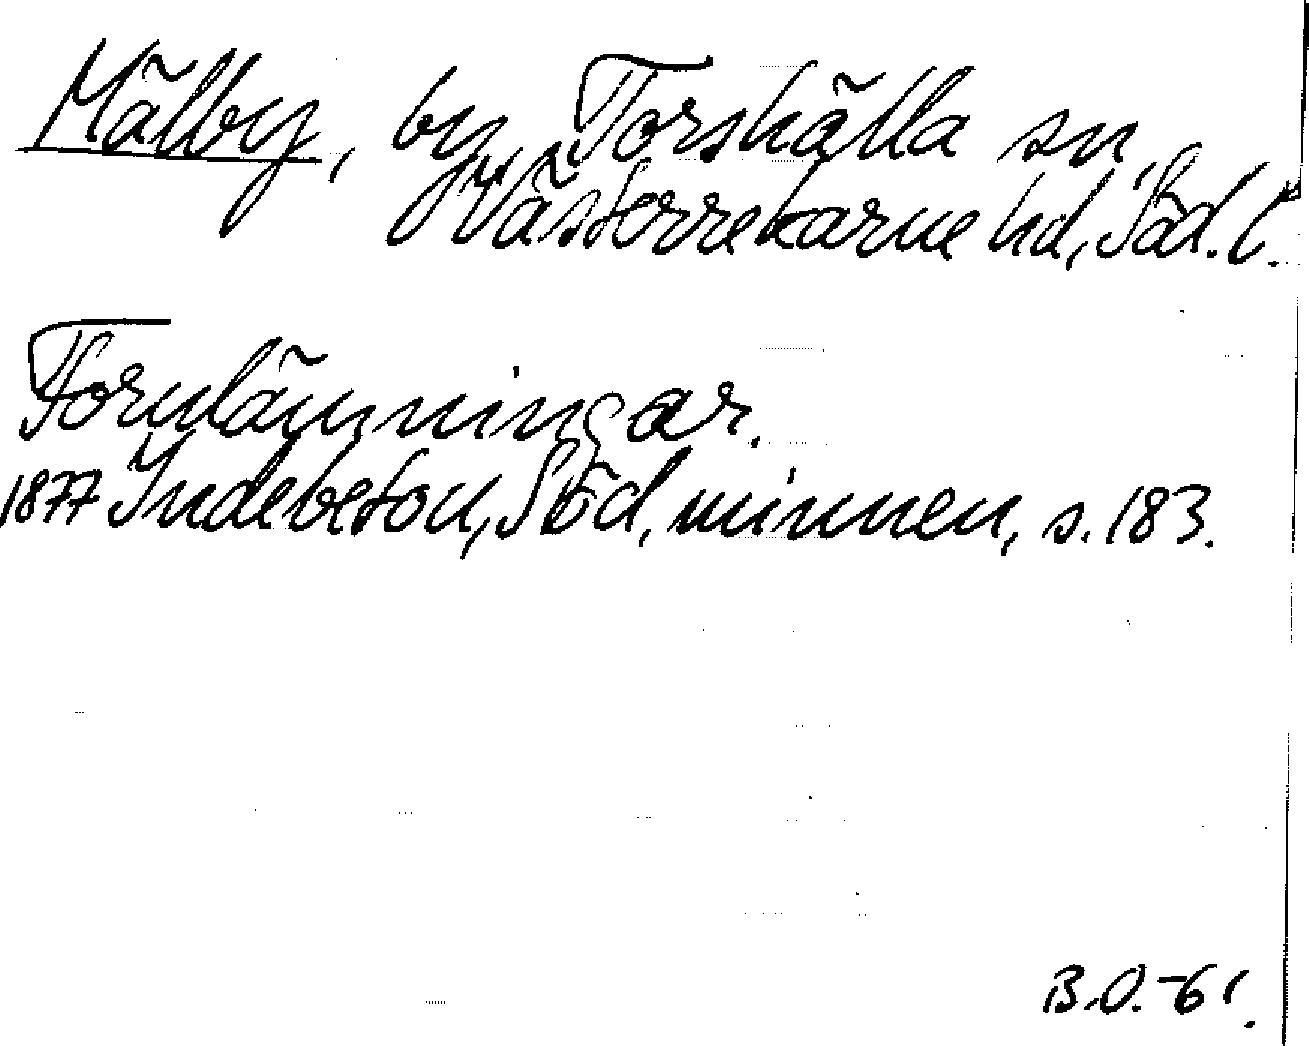 Mälby, by, Torshälla sn,
Västerrekarne hd, Söd. l.
Fornlämningar.
1877 Indebetou, Söd. minnen, s. 183.
B.O.-61.